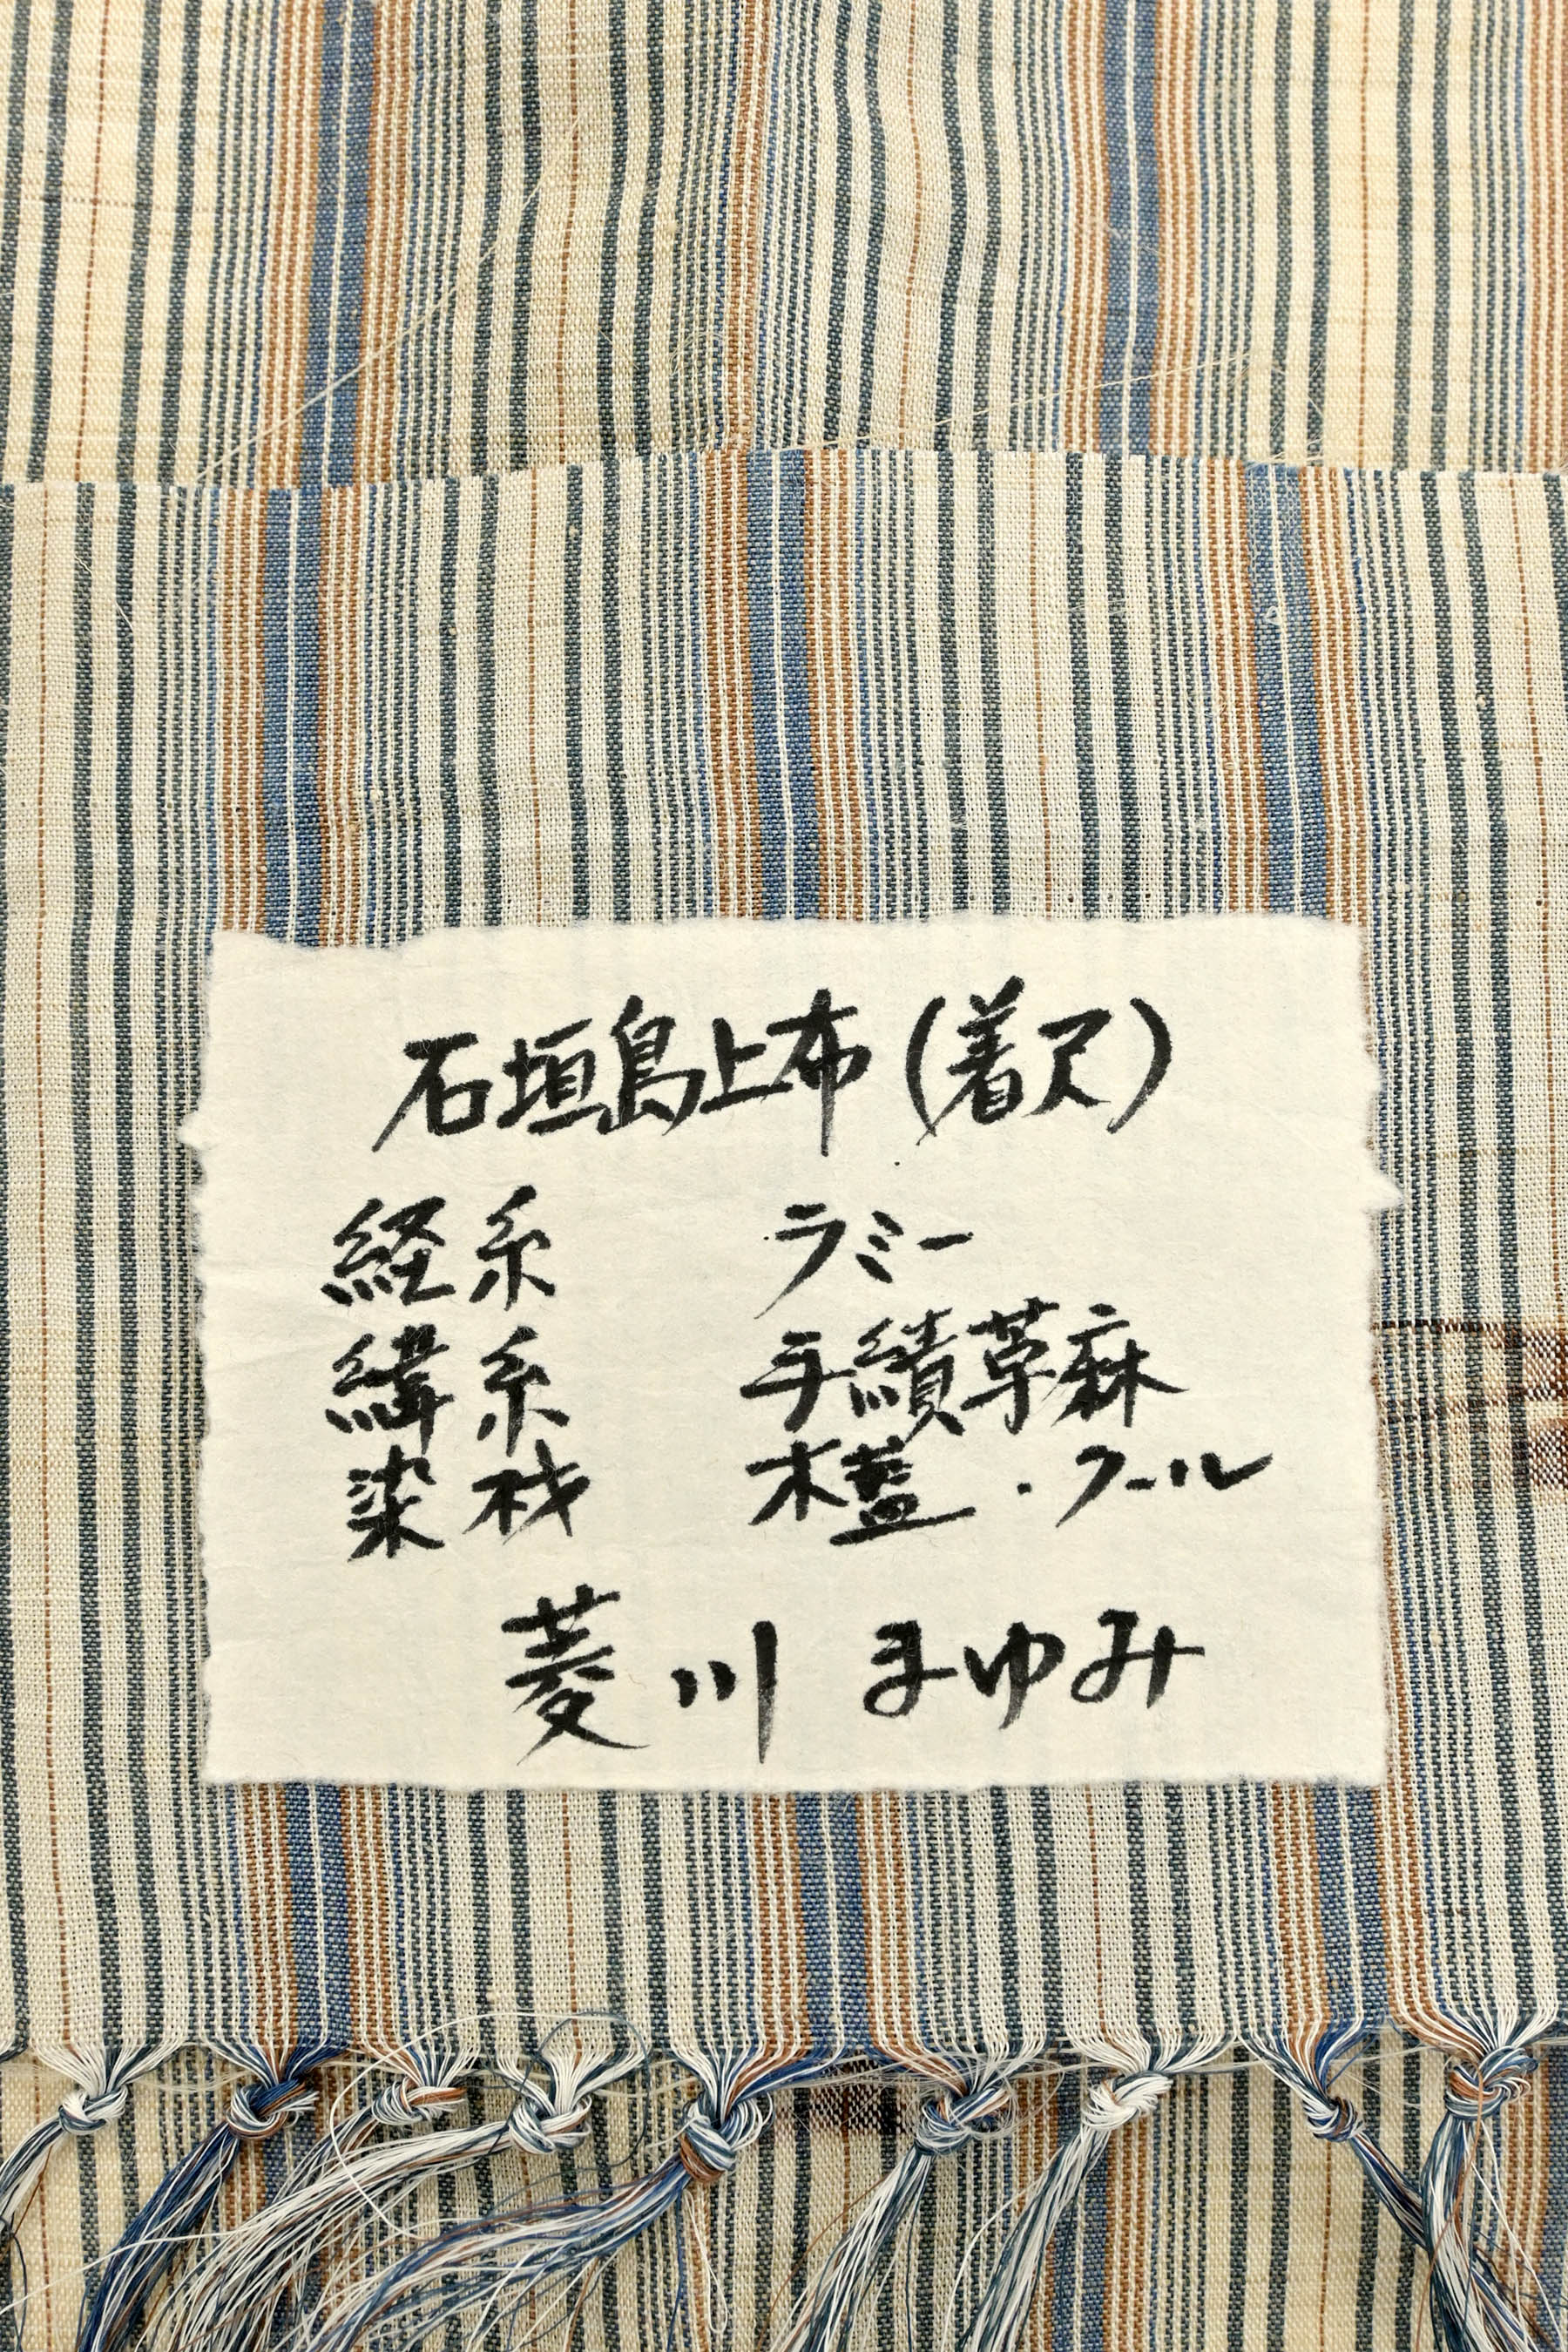 石垣島上布(着尺)
経糸 ラミー
緯糸 手績苧麻
染材 木藍・クール
菱川 まゆみ